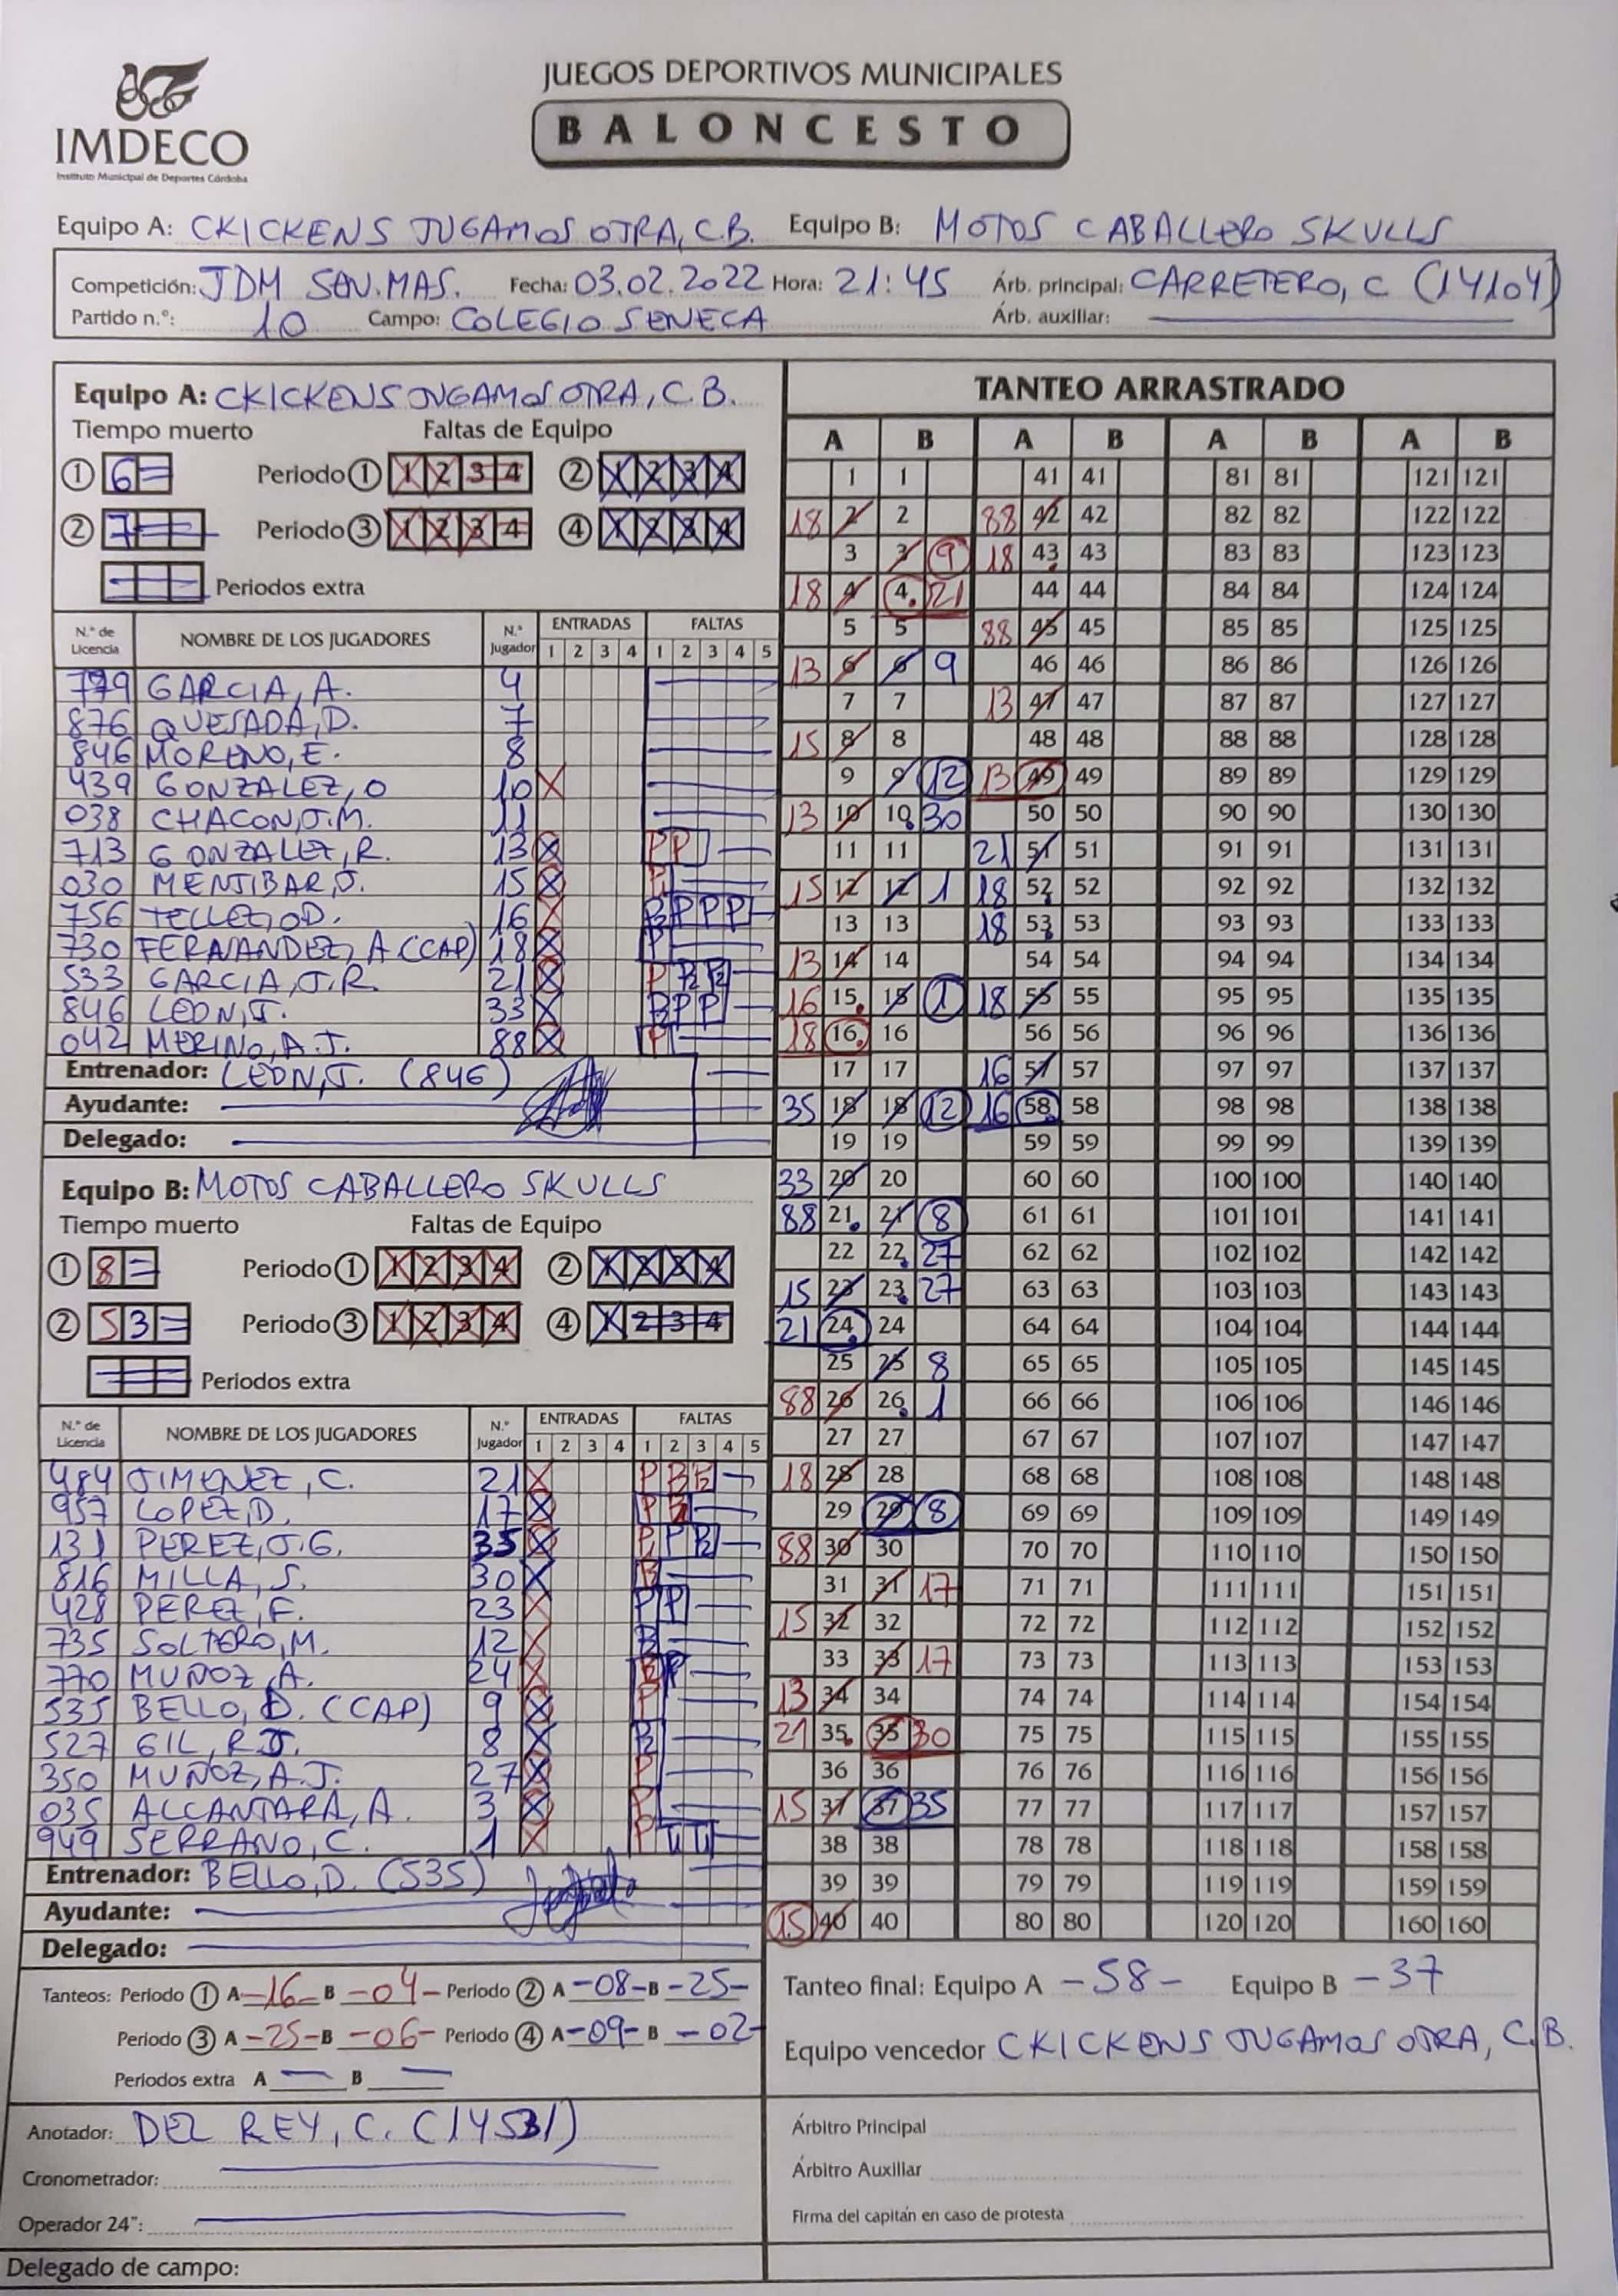 IMDECO
Instituto Municipal de Deportes Córdoba
JUEGOS DEPORTIVOS MUNICIPALES
BALONCESTO
Equipo A: CKICKENS JUGAMOS OTRA, C.B. Equipo B: MOTOS CABALLERO SKULLS
Competición: JDM SEN.MAS. Fecha: 03.02.2022 Hora: 21:45 Árb. principal: CARRETERO, C (14104)
Partido n.º: 10 Campo: COLEGIO SENECA Árb. auxiliar:
Equipo A: CKICKENS JUGAMOS OTRA, C.B.
Tiempo muerto Faltas de Equipo
1 6 = Periodo 1 1 2 3 4 2 1 2 3 4
2 7 Periodo 3 1 2 3 4 4 1 2 3 4
Periodos extra
N.º de Licencia NOMBRE DE LOS JUGADORES N.º Jugador ENTRADAS 1 2 3 4 FALTAS 1 2 3 4 5
779 GARCIA, A. 4
876 QUESADA, D. 7
846 MORENO, E. 8
439 GONZALEZ, O 10 X
038 CHACON, J.M. 11
713 GONZALEZ, R. 13 X P P
030 MENJIBAR, J. 15 X
756 TELLEZ, D. 16 X P2 P P P
730 FERNANDEZ, A (CAP) 18 X P
533 GARCIA, J.R. 21 X P P2 P2
846 LEON, J. 33 X P2 P P
042 MERINO, A.J. 88 X P
Entrenador: LEON, J. (846)
Ayudante:
Delegado:
Equipo B: MOTOS CABALLERO SKULLS
Tiempo muerto Faltas de Equipo
1 8 = Periodo 1 1 2 3 4 2 1 2 3 4
2 5 3 = Periodo 3 1 2 3 4 4 1 2 3 4
Periodos extra
N.º de Licencia NOMBRE DE LOS JUGADORES N.º Jugador ENTRADAS 1 2 3 4 FALTAS 1 2 3 4 5
484 JIMENEZ, C. 21 X P P2 P2
957 LOPEZ, D. 17 X P
131 PEREZ, J.G. 35 X P P2
816 MILLA, S. 30 X
428 PEREZ, F. 23 X P P
735 SOLTERO, M. 12 X P2
770 MUÑOZ, A. 24 X P2 P
535 BELLO, D. (CAP) 9 X P
527 GIL, R.J. 8 X P2
350 MUÑOZ, A.J. 27 X P
035 ALCANTARA, A. 3 X P
949 SERRANO, C. 1 X P
Entrenador: BELLO, D. (535)
Ayudante:
Delegado:
Tanteos: Periodo 1 A -16- B -04- Periodo 2 A -08- B -25-
Periodo 3 A -25- B -06- Periodo 4 A -09- B -02-
Periodos extra A B
Anotador: DEL REY, C. (14531)
Cronometrador:
Operador 24":
Delegado de campo:
TANTEO ARRASTRADO
A B A B A B A B
1 1 41 41 81 81 121 121
18 2 2 88 42 42 82 82 122 122
3 3 9 18 43 43 83 83 123 123
18 4 4 21 44 44 84 84 124 124
5 5 88 45 45 85 85 125 125
13 6 6 9 46 46 86 86 126 126
7 7 13 47 47 87 87 127 127
15 8 8 48 48 88 88 128 128
9 9 12 13 49 49 89 89 129 129
13 10 10 30 50 50 90 90 130 130
11 11 21 51 51 91 91 131 131
15 12 12 1 18 52 52 92 92 132 132
13 13 18 53 53 93 93 133 133
13 14 14 54 54 94 94 134 134
16 15 15 1 18 55 55 95 95 135 135
18 16 16 56 56 96 96 136 136
17 17 16 57 57 97 97 137 137
35 18 18 12 16 58 58 98 98 138 138
19 19 59 59 99 99 139 139
33 20 20 60 60 100 100 140 140
88 21 21 8 61 61 101 101 141 141
22 22 27 62 62 102 102 142 142
15 23 23 27 63 63 103 103 143 143
21 24 24 64 64 104 104 144 144
25 25 8 65 65 105 105 145 145
88 26 26 1 66 66 106 106 146 146
27 27 67 67 107 107 147 147
18 28 28 68 68 108 108 148 148
29 29 8 69 69 109 109 149 149
88 30 30 70 70 110 110 150 150
31 31 17 71 71 111 111 151 151
15 32 32 72 72 112 112 152 152
33 33 17 73 73 113 113 153 153
13 34 34 74 74 114 114 154 154
21 35 35 30 75 75 115 115 155 155
36 36 76 76 116 116 156 156
15 37 37 35 77 77 117 117 157 157
38 38 78 78 118 118 158 158
39 39 79 79 119 119 159 159
15 40 40 80 80 120 120 160 160
Tanteo final: Equipo A -58- Equipo B -37
Equipo vencedor CKICKENS JUGAMOS OTRA, C.B.
Árbitro Principal
Árbitro Auxiliar
Firma del capitán en caso de protesta